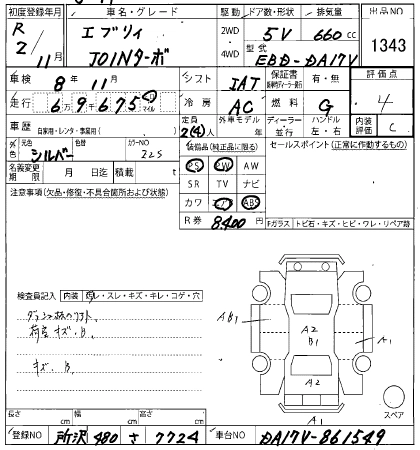 初度登録年月 車名・グレード 駆動 ドア数・形状 排気量 出品NO
R 2/11月 エブリィ JOINターボ 2WD・4WD 5V 660cc 1343
型式 EBD-DA17V
車検 8年 11月 シフト IAT 保証書 有・無 評価点 4
走行 6 9 675 マイル 冷房 AC 燃料 G
車歴 自家用・レンタ・事業用( ) 定員 2(4)人 外車モデル 年 ディーラー・並行 ハンドル 左・右 内装評価 C
外色 元色 シルバー 色替 カラーNO Z2S 装備品(純正品に限る) セールスポイント(正常に作動するもの)
名義変更期限 月 日迄 積載 t PS PW AW
注意事項(欠品・修復・不具合箇所および状態) SR TV ナビ
カワ エアB ABS
R券 8,400円 Fガラス トビ石・キズ・ヒビ・ワレ・リペア跡
検査員記入 内装 ヨゴレ・スレ・キズ・キレ・コゲ・穴
荷室キズ.B.
キズ.B.
AB1
A2
B1
A1
A2
A1
スペア
長さ cm 幅 cm 高さ cm
登録NO 所沢 480 さ 7724 車台NO DA17V-861549